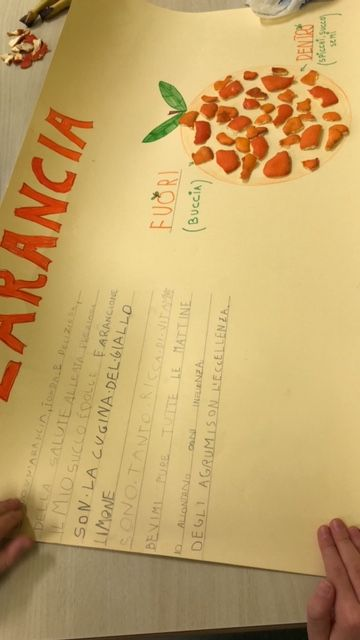 L'ARANCIA
FUORI
(BUCCIA)
DENTRO
(SPICCHI, SUCCO,
SEMI
SONO L'ARANCIA, TONDA E DELIZIOSA,
DELLA SALUTE ALLEATA PREZIOSA
IL MIO SUCCO É DOLCE E ARANCIONE
SON LA CUGINA DEL GIALLO
LIMONE
SONO TANTO RICCA DI VITAMINE
BEVIMI PURE TUTTE LE MATTINE
IO ALLONTANO OGNI INFLUENZA
DEGLI AGRUMI SON L'ECCELLENZA